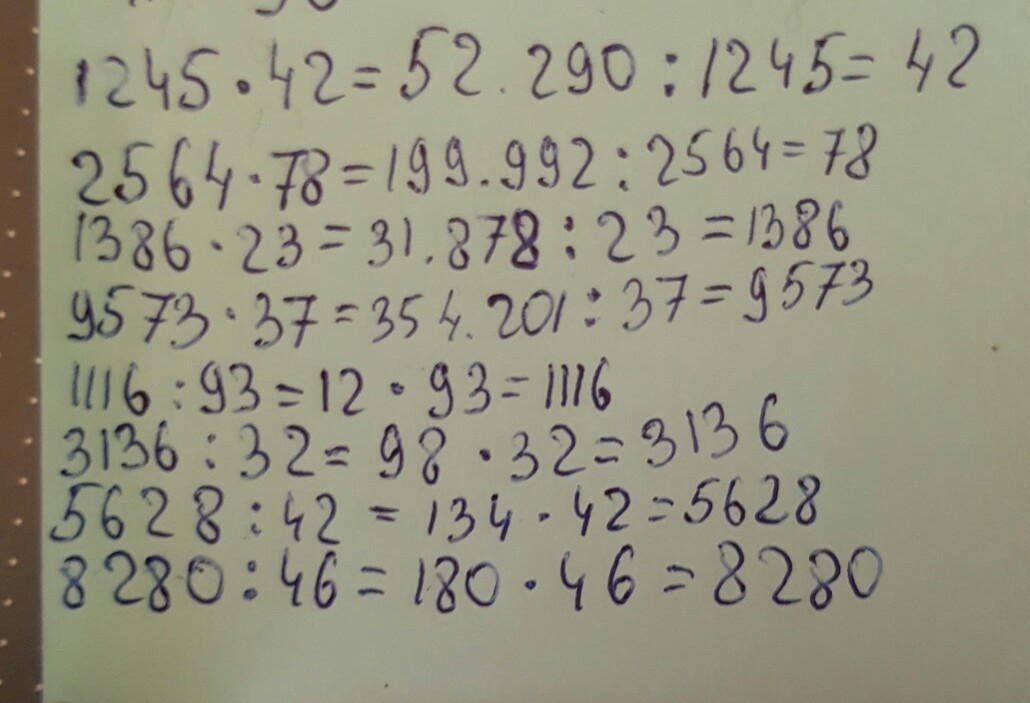 1245·42=52.290:1245=42
2564·78=199.992:2564=78
1386·23=31.878:23=1386
9573·37=354.201:37=9573
1116:93=12·93=1116
3136:32=98·32=3136
5628:42=134·42=5628
8280:46=180·46=8280